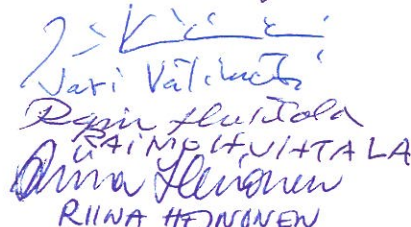 Jari Välimäki
Raimo Huhtala
RAIMO HUHTALA
Riina Heinonen
RIINA HEINONEN